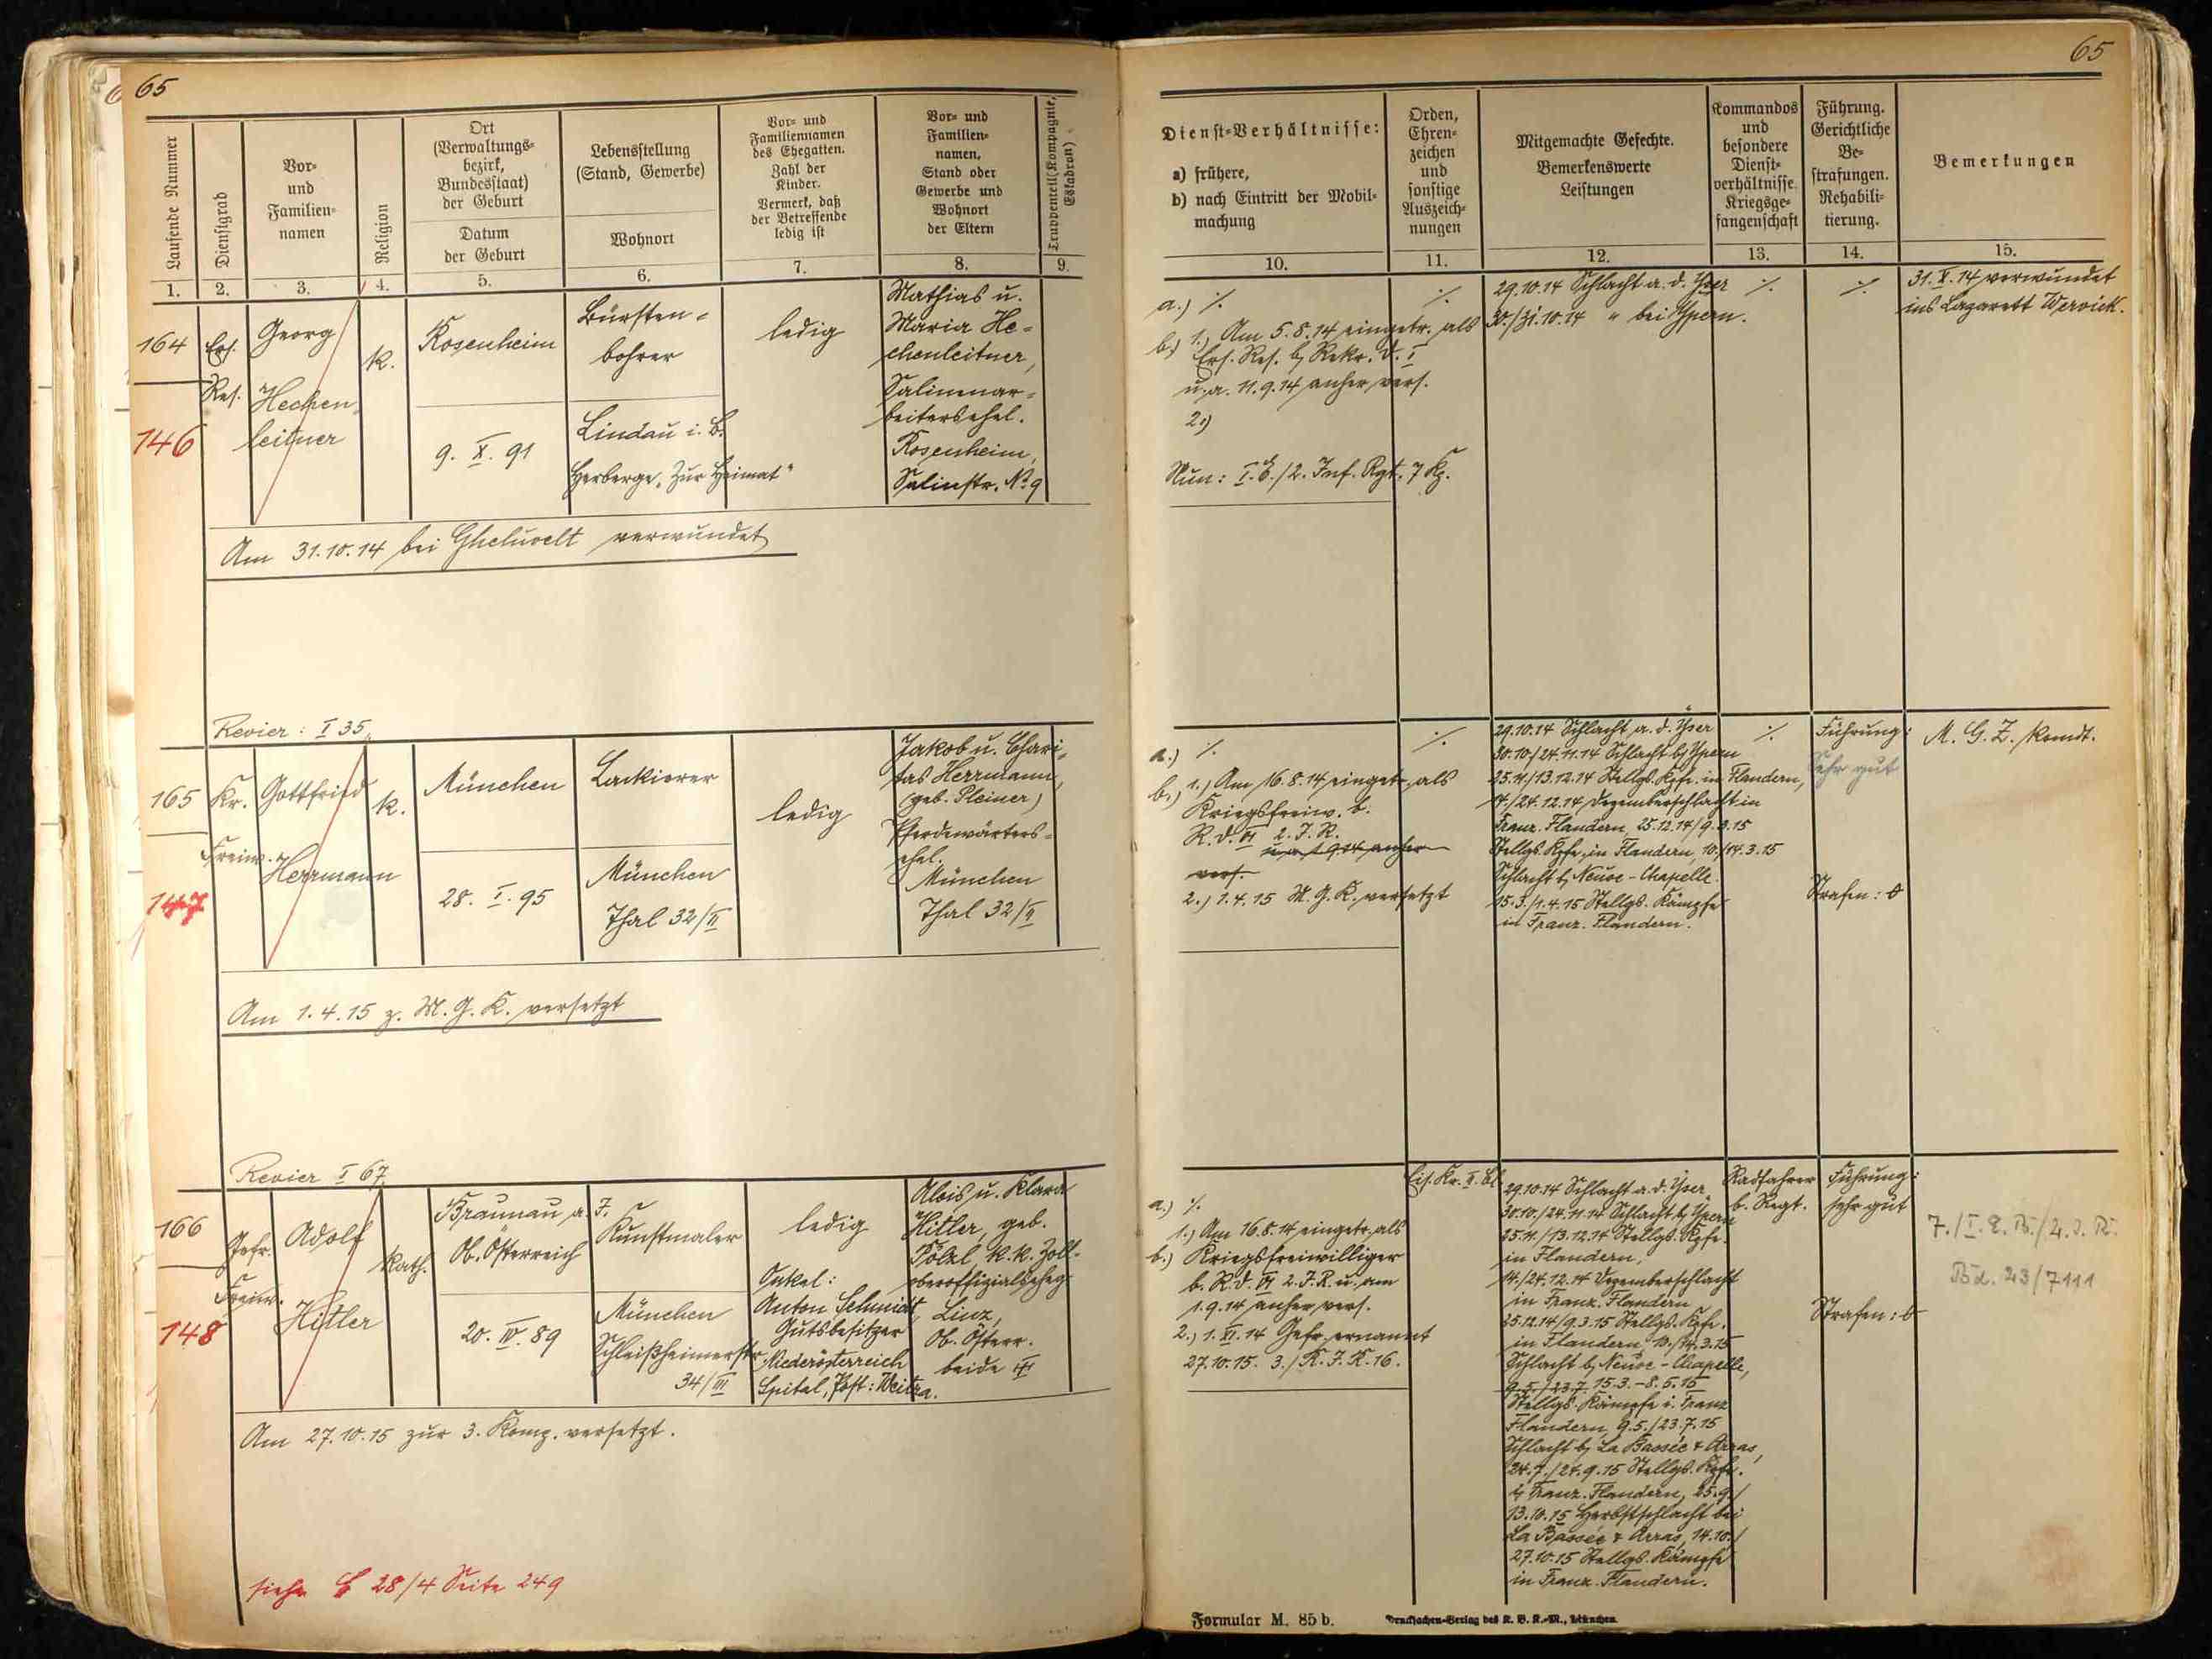 65
Laufende Nummer
Dienstgrad
Vor-
und
Familien-
namen
Religion
Ort
(Verwaltungs-
bezirk,
Bundesstaat)
der Geburt
Datum
der Geburt
Lebensstellung
(Stand, Gewerbe)
Wohnort
Vor- und
Familiennamen
des Ehegatten.
Zahl der
Kinder.
Vermerk, daß
der Betreffende
ledig ist
Vor- und
Familien-
namen,
Stand oder
Gewerbe und
Wohnort
der Eltern
Truppenteil (Kompagnie,
Eskadron)
1.
2.
3.
4.
5.
6.
7.
8.
9.
164
146
Ers.
Res.
Georg
Hechen-
leitner
K.
Rosenheim
9. X. 91
Bürsten-
bohrer
Lindau i. B.
Herberge „Zur Heimat"
ledig
Mathias u.
Maria He-
chenleitner,
Salinenar-
beitersehel.
Rosenheim,
Salinstr. No 9
Am 31.10.14 bei Gheluvelt verwundet
Revier: I 35
165
147
Kr.
Freiw.
Gottfried
Herrmann
K.
München
28. I. 95
Lackierer
München
Thal 32/II
ledig
Jakob u. Chari-
tas Herrmann,
(geb. Pleiner)
Pferdewärters-
ehel.
München
Thal 32/II
Am 1.4.15 z. M. G. K. versetzt
Revier I 67
166
148
Gefr.
Freiw.
Adolf
Hitler
Kath.
Braunau a. I.
Ob. Österreich
20. IV. 89
Kunstmaler
München
Schleißheimerstr.
34/III
ledig
Onkel:
Anton Schmidt,
Gutsbesitzer
Niederösterreich
Spital, Post: Weitra.
Alois u. Klara
Hitler, geb.
Pölzl, K. K. Zoll-
oberoffizialseheg.
Linz,
Ob. Österr.
beide
Am 27.10.15 zur 3. Komp. versetzt.
siehe 28/4 Seite 249
65
Dienst-Verhältnisse:
a) frühere,
b) nach Eintritt der Mobil-
machung
Orden,
Ehren-
zeichen
und
sonstige
Auszeich-
nungen
Mitgemachte Gefechte.
Bemerkenswerte
Leistungen
Kommandos
und
besondere
Dienst-
verhältnisse.
Kriegsge-
fangenschaft
Führung.
Gerichtliche
Be-
strafungen.
Rehabili-
tierung.
Bemerkungen
10.
11.
12.
13.
14.
15.
a.) ./.
b.) 1.) Am 5.8.14 eingetr. als
Ers. Res. b. Rekr. D. I
u. a. 11.9.14 anher vers.
2.)
Nun: I. E./2. Inf. Rgt. 7 Kp.
./.
29.10.14 Schlacht a. d. Yser
30./31.10.14 " bei Ypern.
./.
./.
31. X. 14 verwundet
ins Lazarett Wervick.
a.) ./.
b.) 1.) Am 16.8.14 eingetr. als
Kriegsfreiw. b.
R. D. VI 2. J. R.
u. a. 1.9.14 anher
vers.
2.) 1.4.15 M. G. K. versetzt
./.
29.10.14 Schlacht a. d. Yser
30.10/24.11.14 Schlacht b. Ypern
25.11/13.12.14 Stellgs. Kpfe. in Flandern,
14./24.12.14 Dezemberschlacht in
Franz. Flandern, 25.12.14/9.3.15
Stellgs. Kpfe. in Flandern, 10./14.3.15
Schlacht b. Neuve-Chapelle
15.3./1.4.15 Stellgs. Kämpfe
in Franz. Flandern.
./.
Führung:
Sehr gut
Strafen: 0
M. G. Z. /komdt.
a.) ./.
1.) Am 16.8.14 eingetr. als
b.) Kriegsfreiwilliger
b. R. D. VI 2. J. R. u. am
1.9.14 anher vers.
2.) 1. XI. 14 Gefr. ernannt
27.10.15. 3./R. J. R. 16.
Eis. Kr. II. Kl.
29.10.14 Schlacht a. d. Yser
30.10./24.11.14 Schlacht b. Ypern
25.11./13.12.14 Stellgs. Kpfe.
in Flandern,
14./24.12.14 Dezemberschlacht
in Franz. Flandern
25.12.14/9.3.15 Stellgs. Kpfe.
in Flandern, 10./14.3.15
Schlacht b. Neuve-Chapelle,
9.5./23.7. 15.3.-8.5.15
Stellgs. Kämpfe i. Franz
Flandern, 9.5./23.7.15
Schlacht b. La Bassée & Arras,
24.7./24.9.15 Stellgs. Kpfe.
i. Franz. Flandern, 25.9./
13.10.15 Herbstschlacht bei
La Bassée & Arras, 14.10./
27.10.15 Stellgs. Kämpfe
in Franz. Flandern.
Radfahrer
b. Regt.
Führung:
sehr gut
Strafen: 0
7./I. E. B./2. J. R.
Bd. 23/7111
Formular M. 85 b.
Drucksachen-Verlag des K. B. K.-M., München.